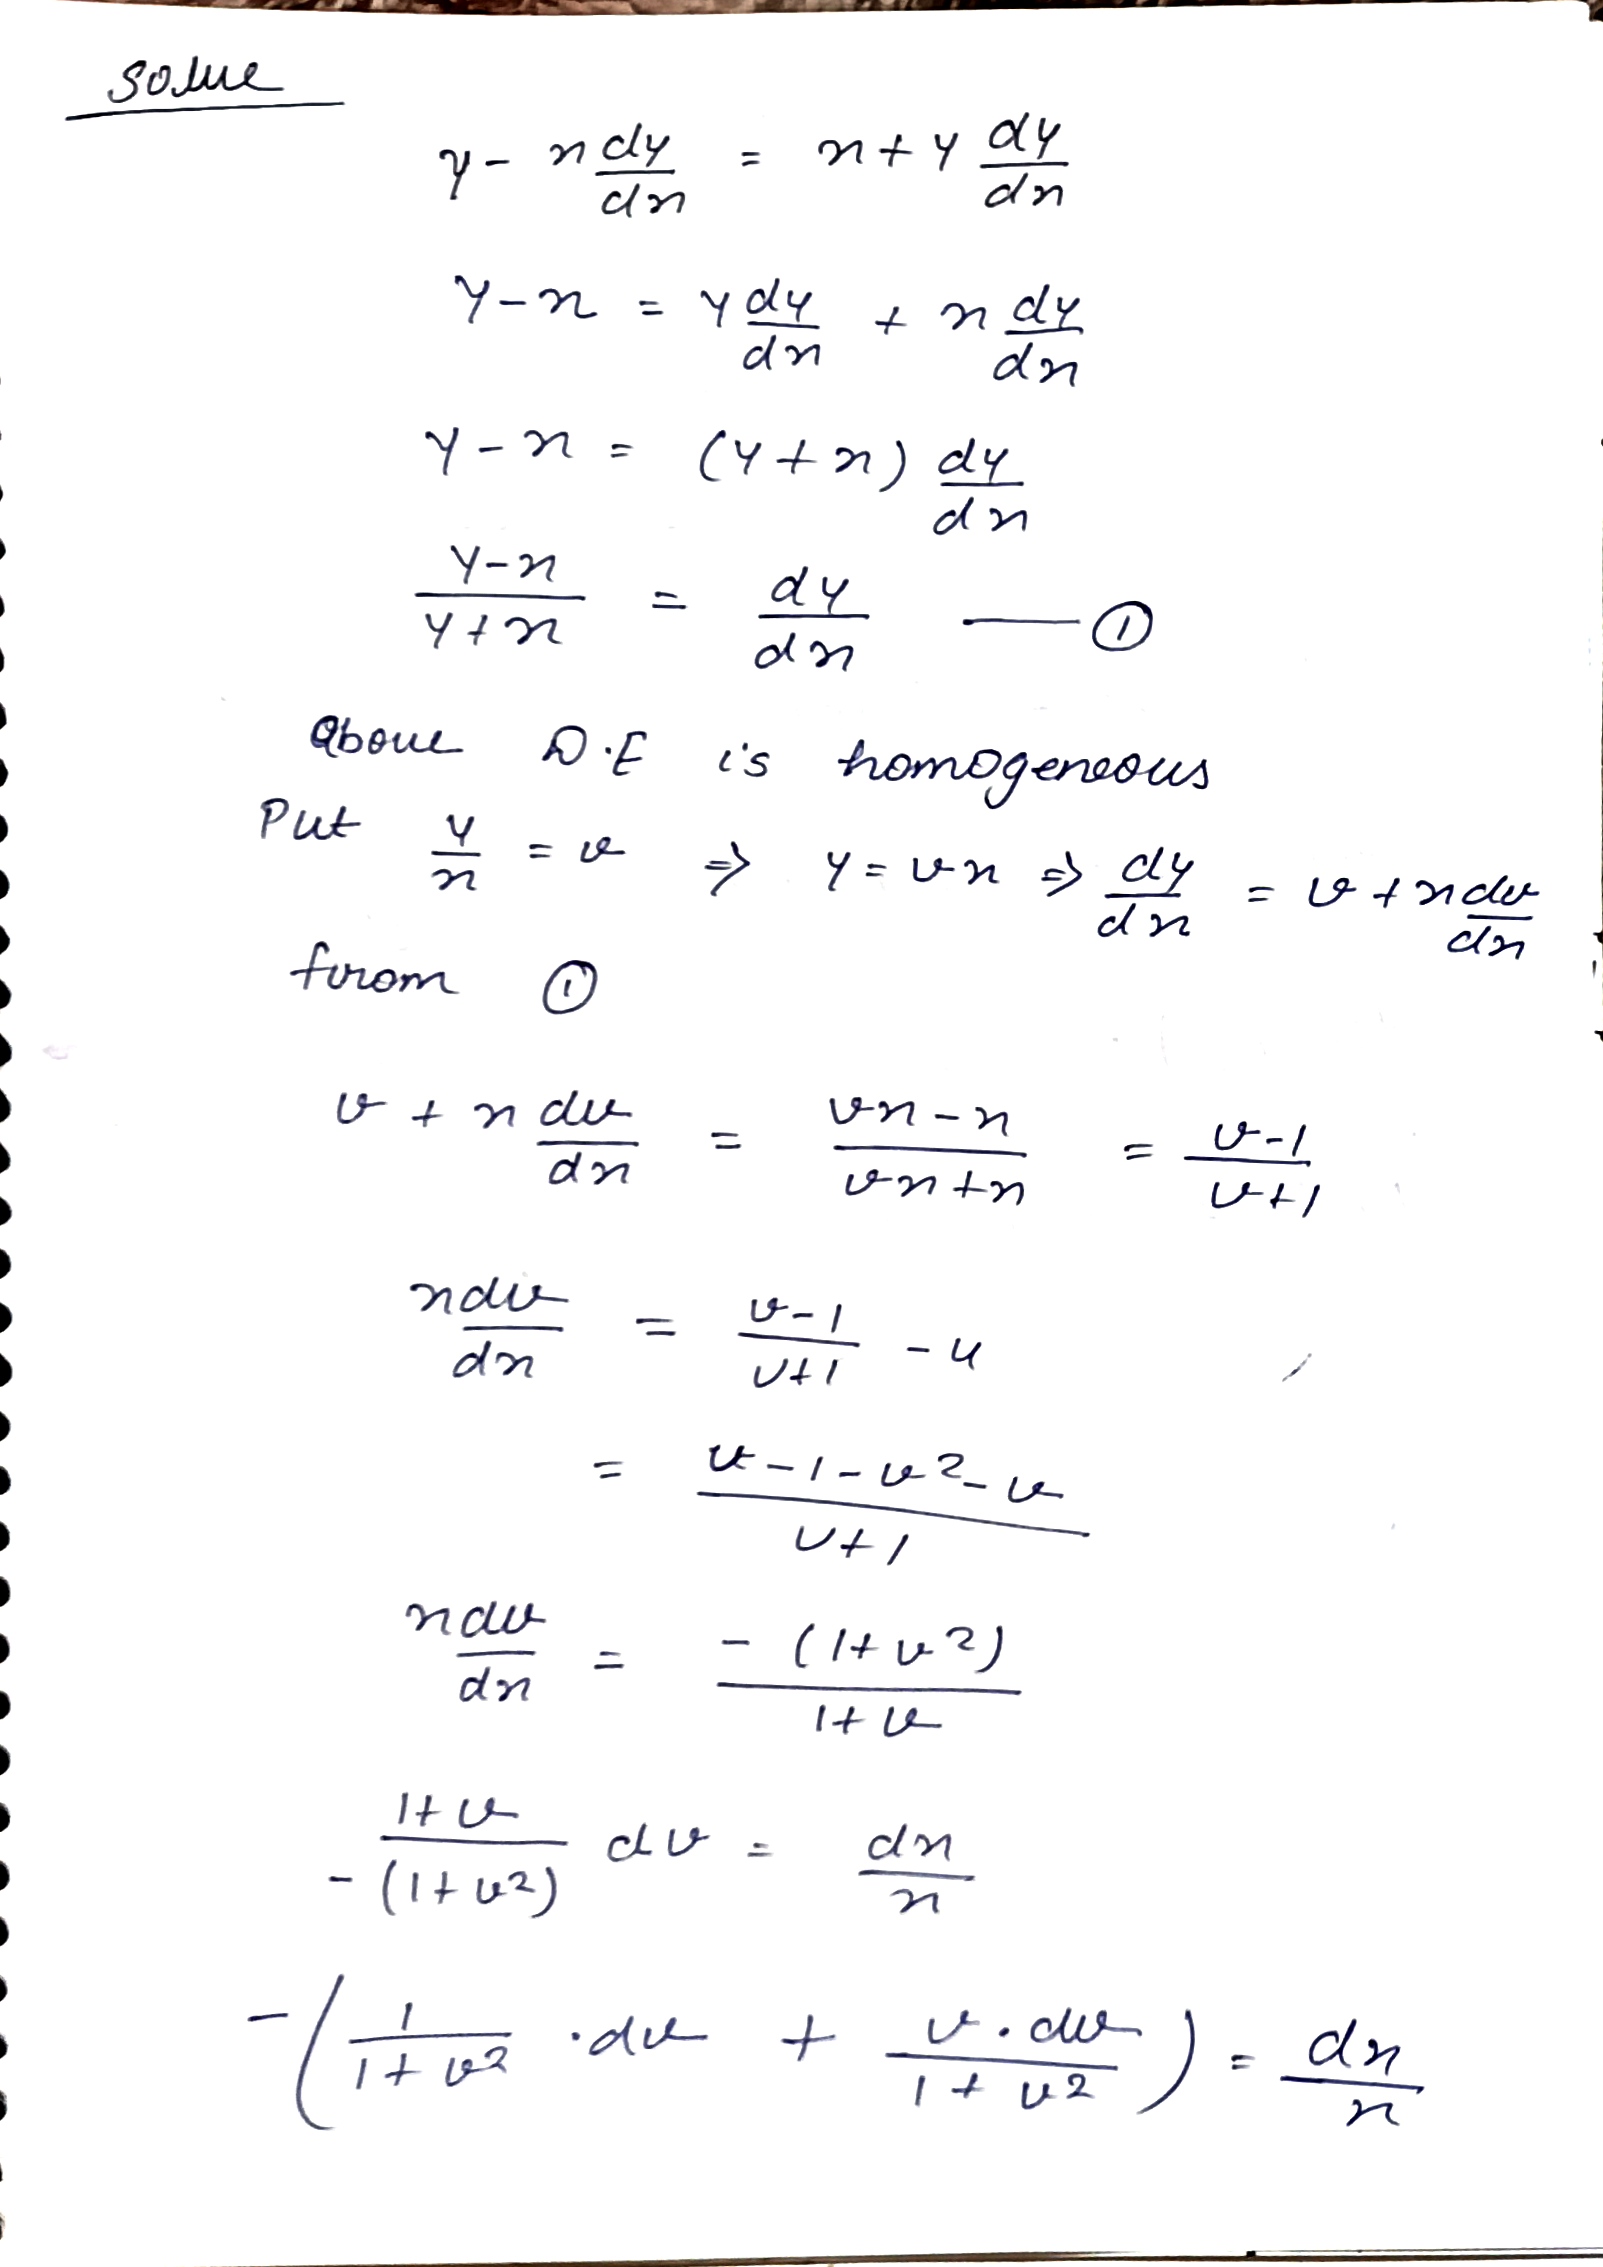 Solve
y - x dy/dx = x + y dy/dx
y - x = y dy/dx + x dy/dx
y - x = (y + x) dy/dx
(y - x)/(y + x) = dy/dx — ①
above D.E is homogeneous
Put y/x = v ⇒ y = vx ⇒ dy/dx = v + x dv/dx
from ①
v + x dv/dx = (vx - x)/(vx + x) = (v - 1)/(v + 1)
x dv/dx = (v - 1)/(v + 1) - v
= (v - 1 - v² - v)/(v + 1)
x dv/dx = -(1 + v²)/(1 + v)
(1 + v)/-(1 + v²) dv = dx/x
-(1/(1 + v²) · dv + v · dv/(1 + v²)) = dx/x